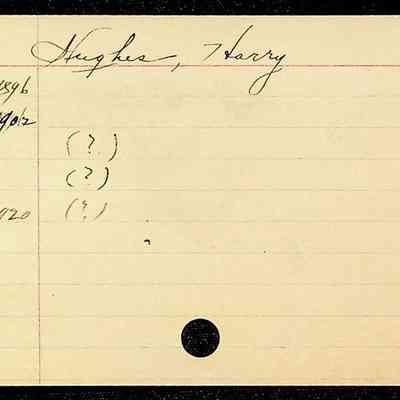 Hughes, Harry
1896
1902
(?)
(?)
1920 (?)